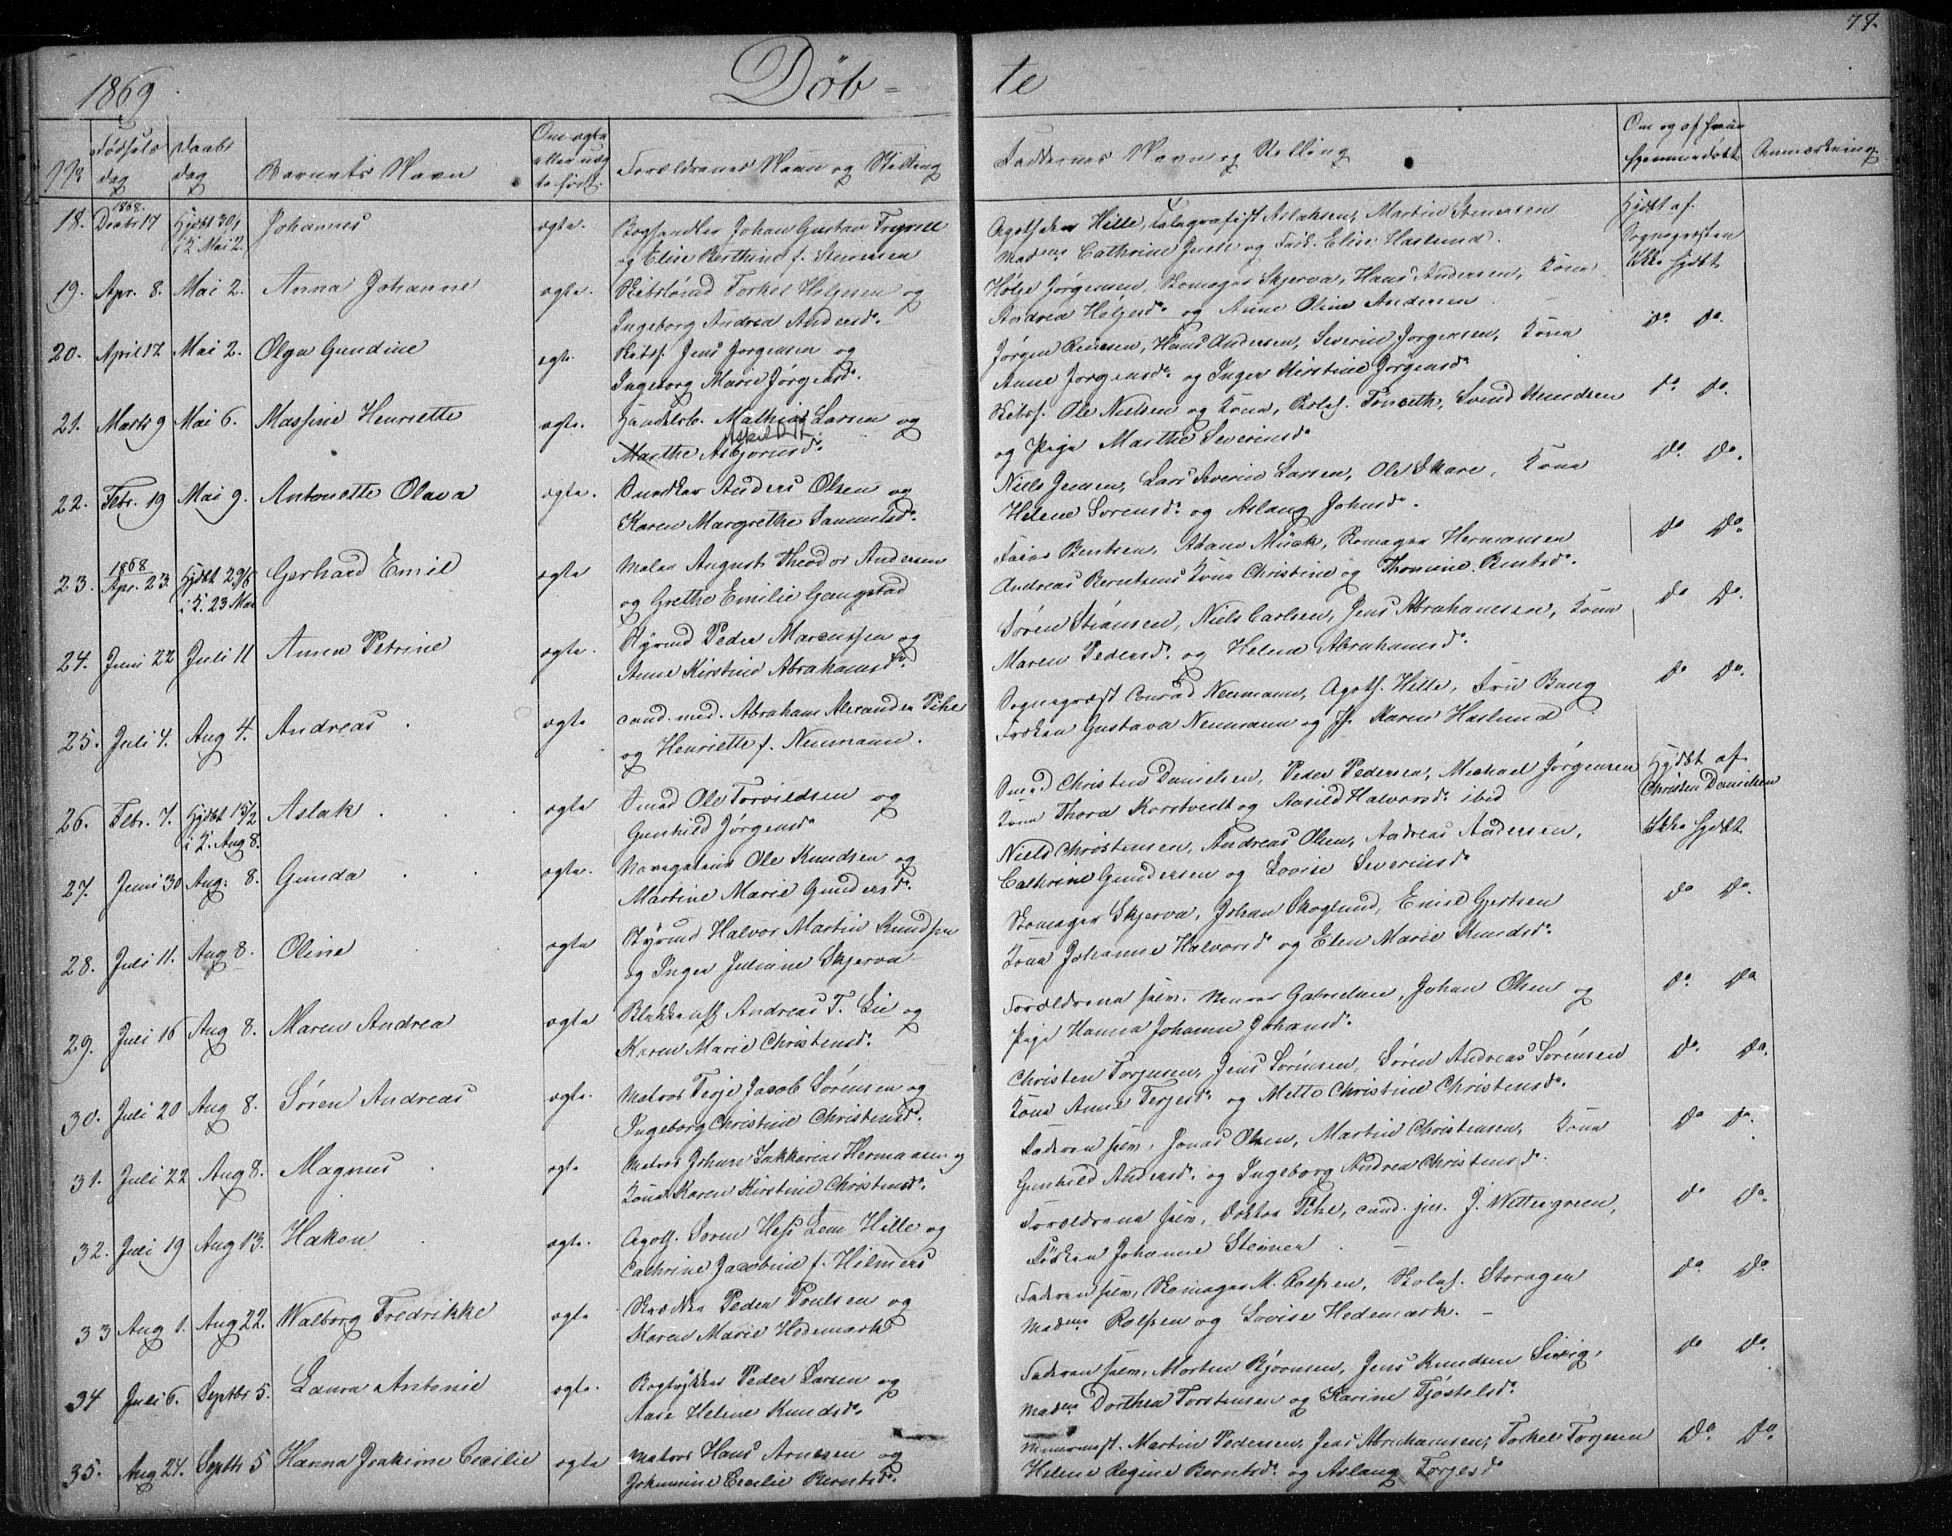 77.
1869.
Døb=
te
No
Fødsels dag
Daabs dag
Barnets Navn
Om ægte eller uægte født.
Forældrenes Navn og Stilling
Faddernes Navn og Stilling
Om og af hvem hjemmedøbt
Anmærkning.
18. 1868. Decbr 17 Hjdbt 30/1 i K. Mai 2. Johannes ægte. Boghandler Johan Gustav
og Elise Berthine f. Stenersen
Apotheker Hille, Telegrafist Aslaksen, Martin Stenersen
Madme Cathrine Juell og Frøk. Elise Haslund.
Hjdbt af Sognepresten
19. Apr. 8. Mai 2. Anna Johanne ægte. Skibstømd Torkel Holjesen og
Ingeborg Andrea Andersdr.
Holje Jørgensen, Skomager Skjerva, Hans Andersen, Kona
Andrea Holjesdr og Anne Oline Andersen
Ikke hjdbt
20. April 12 Mai 2. Olga Gundine ægte. Skibsf. Jens Jørgensen og
Ingeborg Marie Jørgensdr.
Jørgen Reiersen, Hans Andersen, Severin Jørgensen, Kona
Anne Jørgensdr og Inger Kirstine Jørgensdr
do do.
21. Marts 9 Mai 6. Massine Henriette ægte. Handelsb. Mathias Larsen og
Marthe Asbjørnsdr.
Skibsf. Ole Nielsen og Kona, Skolef. Tonseth, Svend Knudsen
og Pige Marthe Severinsdr
do do.
22. Febr. 19 Mai 9. Antonette Olava ægte. Snedker Anders Olsen og
Karen Margrethe Samuelsdr.
Niels Jensen, Lars Severin Larsen, Ole Skare, Kona
Helene Sørensdr og Aslaug Johnsdr.
do. do.
23. 1868 Apr. 23. Hjdbt 29/6 i K. 23 Mai Gerhard Emil ægte Maler August Theodor Andersen
og Grethe Emilie Gangstad
Bentsen, Adam Mück, Skomager Hermansen
Andreas Berntsens Kona Christine og Thomine Bentsdr.
do do.
24. Juni 22 Juli 11 Anna Petrine ægte. Styrmd Peder Marcussen og
Anne Kirstine Abrahamsdr.
Søren Stiansen, Niels Carlsen, Jens Abrahamsen, Kona
Maren Pedersdr og Helene Abrahamsdr.
do do.
25. Juli 4. Aug 4. Andreas. ægte cand. med. Abraham Alexander Pihl
og Henriette f. Neumann.
Sognepræst Conrad Neumann, Apoth. Hille, Fru Bang
Frøken Gustava Neumann og Fr. Maren Haslund
do do.
26. Febr. 7. Hjdbt 15/2 i K. Aug 8. Aslak ægte Smed Ole Torvildsen og
Gunhild Jørgensdr
Smed Christen Danielsen, Peder Pedersen, Michael Jørgensen
Kona Thora Korstvedt og Aasild Halvorsdr ibid
Hjdbt af Christen Danielsen
27. Juni 30 Aug. 8. Gunda ægte. Navigateur Ole Knudsen og
Martine Marie Gundersdr.
Niels Christensen, Andreas Olsen, Andreas Andersen,
Cathrine Gundersen og Lovise Severinsdr
Ikke hjdbt
28. Juli 11. Aug 8. Oline ægte Styrmd Halvor Martin Knudsen
og Inger Juliane Skjerva
Skomager Skjerva, Johan Skoglund, Emil Gjertsen
Kona Johanne Halvorsdr og Elen Marie Knudsdr.
do do.
29. Juli 16 Aug 8. Maren Andrea ægte Andreas T. Lie og
Karen Marie Christensdr.
Forældrene selv, Murer Gabrielsen, Johan Olsen og
Pige Hanna Johanne Johansdr.
do. do
30. Juli 20 Aug 8. Søren Andreas ægte. Matros Terje Jacob Sørensen og
Ingeborg Christine Christensdr.
Christen Torjusen, Jens Sørensen, Søren Andreas Sørensen
Kona Anne Terjesdr og Mette Christine Christensdr.
do. do.
31. Juli 22 Aug 8. Magnus ægte Matros Johan Sakkarias Hermansen og
Kona Karen Kirstine Christensdr.
Faderen selv, Jonas Olsen, Martin Christensen, Kona
Gunhild Andersdr og Ingeborg Andrea Christensdr.
do do.
32. Juli 19 Aug 13. Haken ægte. Apoth. Søren Hess Lem Hille og
Cathrine Jacobine f. Hilmers
Forældrene selv, Doktor Pihl, cand. jur. J. Wettergreen,
Frøken Johanne Steiner.
do do.
33 Aug 1. Aug 22. Walborg Fredrikke ægte Skrædder Peder Poulsen og
Karen Marie Hedemark
Faderen selv, Skomager M. Rolfsen, Skolef. Storagen
Madme Rolfsen og Lovise Hedemark.
do do.
34 Juli 6. Septbr 5. Laura Antonie ægte. Bogtrykker Peder Larsen og
Aase Helene Knudsdr.
Faderen selv, Morten Bjørnsen, Jens Knudsen
Madme Dorthea Torstensen og Karine Tjøstelsdr.
do do.
35. Aug 24. Septbr 5 Hanna Joakime Cecilie ægte Matros Hans Arnesen og
Johannine Cecilie Berntsdr.
Murermst. Martin Pedersen, Jens Abrahamsen, Torkel Torjesen
Helene Regine Berntsdr. og Aslaug Torjesdr
do. do.